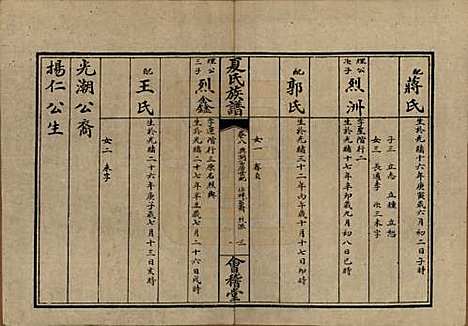 配 蔣氏
生於光緒十六年庚寅歲六月初二日戌時
子三 立志 立種 立恕
女三 長適李 次三未字
理公次子 烈洲
字星階行二
生於光緒十七年辛卯歲九月初八日巳時
配 郭氏
生於光緒三十二年丙午歲十月十七日卯時
女一 春貞
夏氏族譜
卷八
會稽堂
理公三子 烈鑫
字蓮階行三原名烈興
生於光緒二十七年辛丑歲七月二十六日戌時
配 王氏
生於光緒二十六年庚子歲七月十三日亥時
女二 未字
光潮公裔
揚仁公生